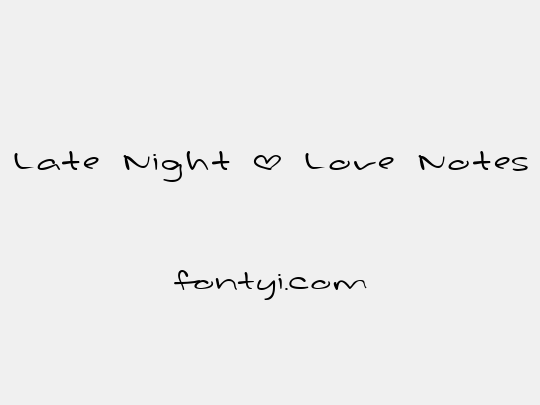 Late Night ♡ Love Notes
fontyi.com